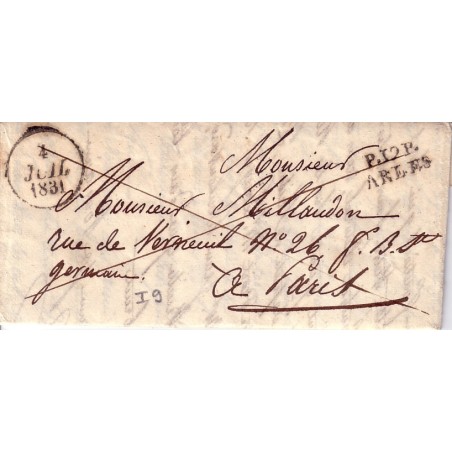 4
JUIL
1831
P.12.P.
ARLES
Monsieur
A Monsieur Millaudon
rue de Verneuil N° 26 f. B. St
germain.
A Paris
I9